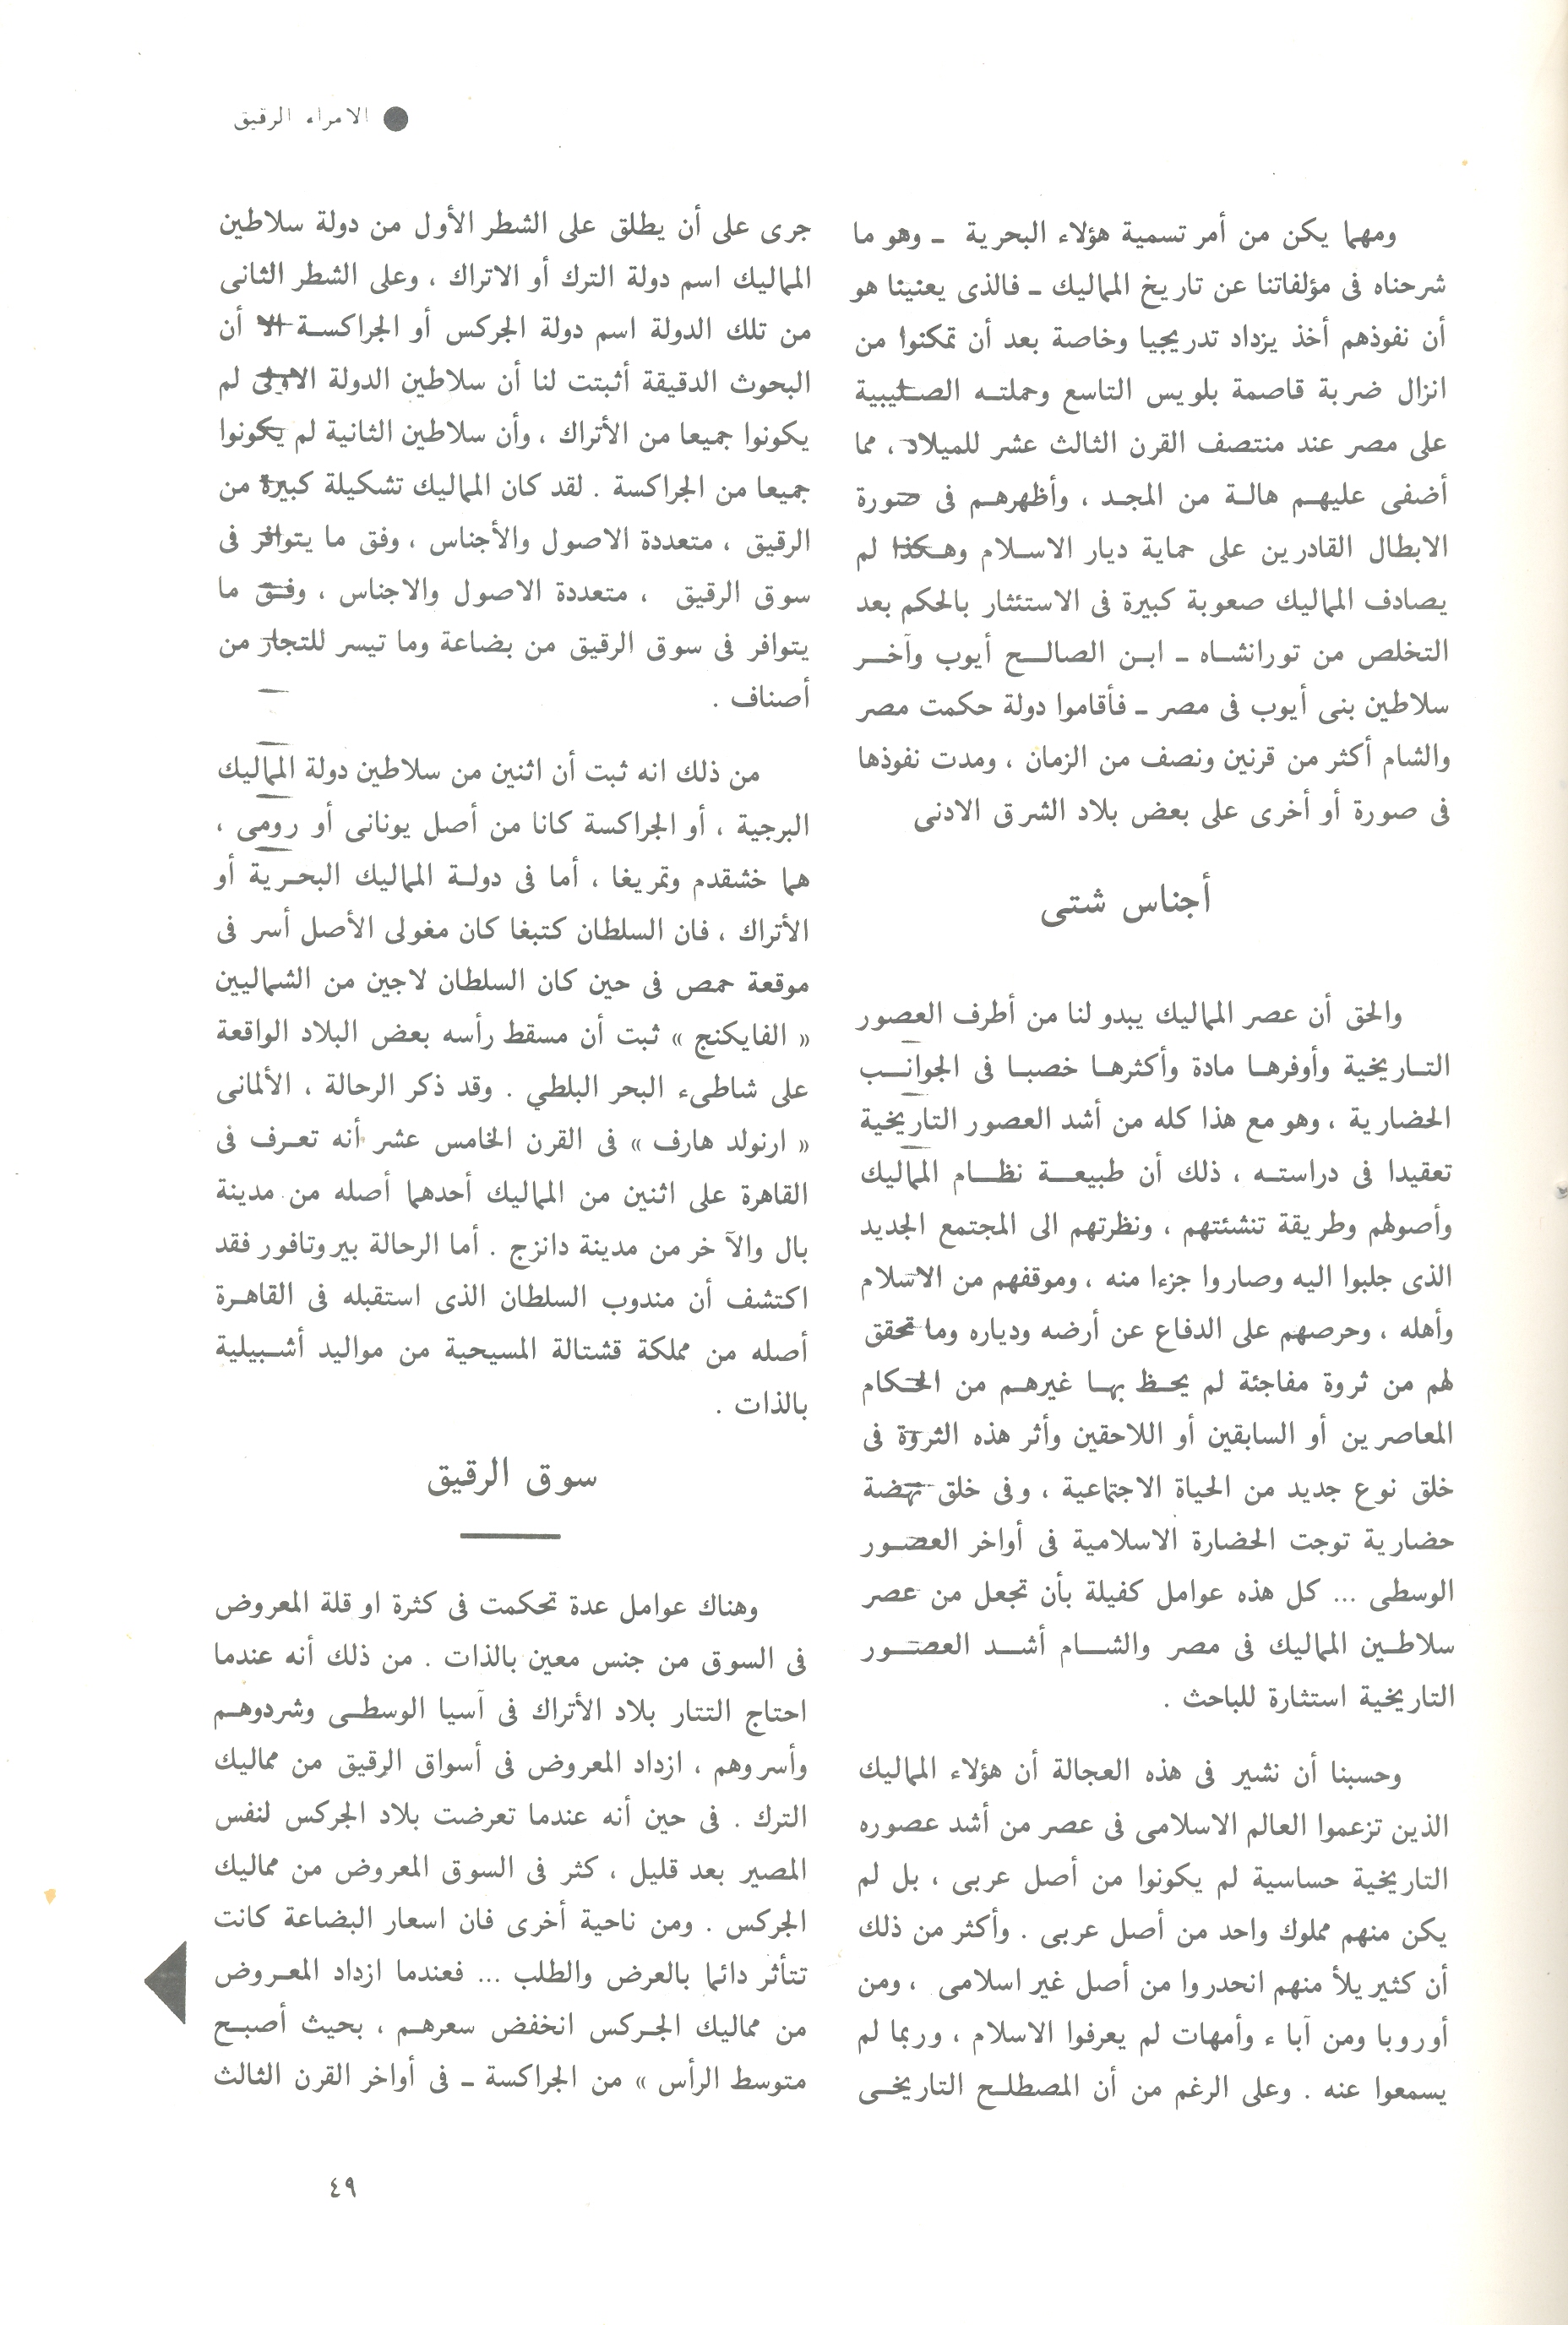 ● الامراء الرقيق
ومهما يكن من أمر تسمية هؤلاء البحرية ـ وهو ما
شرحناه فى مؤلفاتنا عن تاريخ المماليك ـ فالذى يعنينا هو
أن نفوذهم أخذ يزداد تدريجيا وخاصة بعد أن تمكنوا من
انزال ضربة قاصمة بلويس التاسع وحملتـه الصـليبية
على مصر عند منتصف القرن الثالث عشر للميلاد ، مما
أضفى عليهـم هالـة من المجـد ، وأظهرهـم فى صورة
الابطال القادرين على حماية ديار الاسـلام وهـكذا لم
يصادف المماليك صعوبة كبيرة فى الاستئثار بالحكم بعد
التخلص من تورانشـاه ـ ابـن الصالـح أيوب وآخـر
سلاطين بنى أيوب فى مصر ـ فأقاموا دولة حكمت مصر
والشام أكثر من قرنين ونصف من الزمان ، ومدت نفوذها
فى صورة أو أخرى على بعض بلاد الشرق الادنى
أجناس شتى
والحق أن عصر المماليك يبدو لنا من أطرف العصور
التـاريخية وأوفرهـا مادة وأكثرهـا خصبـا فى الجوانـب
الحضارية ، وهو مع هذا كله من أشد العصور التاريخية
تعقيدا فى دراستـه ، ذلك أن طبيعـة نظـام المماليك
وأصولهم وطريقة تنشئتهم ، ونظرتهم الى المجتمع الجديد
الذى جلبوا اليه وصاروا جزءا منه ، وموقفهم من الاسلام
وأهله ، وحرصهم على الدفاع عن أرضه ودياره وما تحقق
لهم من ثروة مفاجئة لم يحـظ بهـا غيرهـم من الحـكام
المعاصرين أو السابقين أو اللاحقين وأثر هذه الثروة فى
خلق نوع جديد من الحياة الاجتماعية ، وفى خلق نهضة
حضارية توجت الحضارة الاسلامية فى أواخر العصـور
الوسطى ... كل هذه عوامل كفيلة بأن تجعل من عصر
سلاطـين المماليك فى مصر والشـام أشـد العصـور
التاريخية استثارة للباحث .
وحسبنا أن نشير فى هذه العجالة أن هؤلاء المماليك
الذين تزعموا العالم الاسلامى فى عصر من أشد عصوره
التاريخية حساسية لم يكونوا من أصل عربى ، بل لم
يكن منهم مملوك واحد من أصل عربى . وأكثر من ذلك
أن كثير يلأ منهم انحدروا من أصل غير اسلامى ، ومن
أوروبا ومن آباء وأمهات لم يعرفوا الاسلام ، وربما لم
يسمعوا عنه . وعلى الرغم من أن المصطلـح التاريخـى
جرى على أن يطلق على الشطر الأول من دولة سلاطين
المماليك اسم دولة الترك أو الاتراك ، وعلى الشطر الثانى
من تلك الدولة اسم دولة الجركس أو الجراكسـة الا أن
البحوث الدقيقة أثبتت لنا أن سلاطين الدولة الاولى لم
يكونوا جميعا من الأتراك ، وأن سلاطين الثانية لم يكونوا
جميعا من الجراكسة . لقد كان المماليك تشكيلة كبيرة من
الرقيق ، متعددة الاصول والأجناس ، وفق ما يتوافر فى
سوق الرقيق ، متعددة الاصول والاجناس ، وفـق ما
يتوافر فى سوق الرقيق من بضاعة وما تيسر للتجار من
أصناف .
من ذلك انه ثبت أن اثنين من سلاطين دولة المماليك
البرجية ، أو الجراكسة كانا من أصل يونانى أو رومى ،
هما خشقدم وتمريغا ، أما فى دولـة المماليك البحـرية أو
الأتراك ، فان السلطان كتبغا كان مغولى الأصل أسر فى
موقعة حمص فى حين كان السلطان لاجين من الشماليين
« الفايكنج » ثبت أن مسقط رأسه بعض البلاد الواقعة
على شاطىء البحر البلطي . وقد ذكر الرحالة ، الألمانى
« ارنولد هارف » فى القرن الخامس عشر أنه تعـرف فى
القاهرة على اثنين من المماليك أحدهما أصله من مدينة
بال والآخر من مدينة دانزج . أما الرحالة بيروتافور فقد
اكتشف أن مندوب السلطان الذى استقبله فى القاهـرة
أصله من مملكة قشتالة المسيحية من مواليد أشـبيلية
بالذات .
سوق الرقيق
وهناك عوامل عدة تحكمت فى كثرة او قلة المعروض
فى السوق من جنس معين بالذات . من ذلك أنه عندما
احتاج التتار بلاد الأتراك فى آسيا الوسطـى وشردوهـم
وأسروهم ، ازداد المعروض فى أسواق الرقيق من مماليك
الترك . فى حين أنه عندما تعرضت بلاد الجركس لنفس
المصير بعد قليل ، كثر فى السوق المعروض من مماليك
الجركس . ومن ناحية أخرى فان اسعار البضاعة كانت
تتأثر دائما بالعرض والطلب ... فعندما ازداد المعـروض
من مماليك الجـركس انخفض سعرهـم ، بحيث أصبـح
متوسط الرأس » من الجراكسة ـ فى أواخر القرن الثالث
٤٩